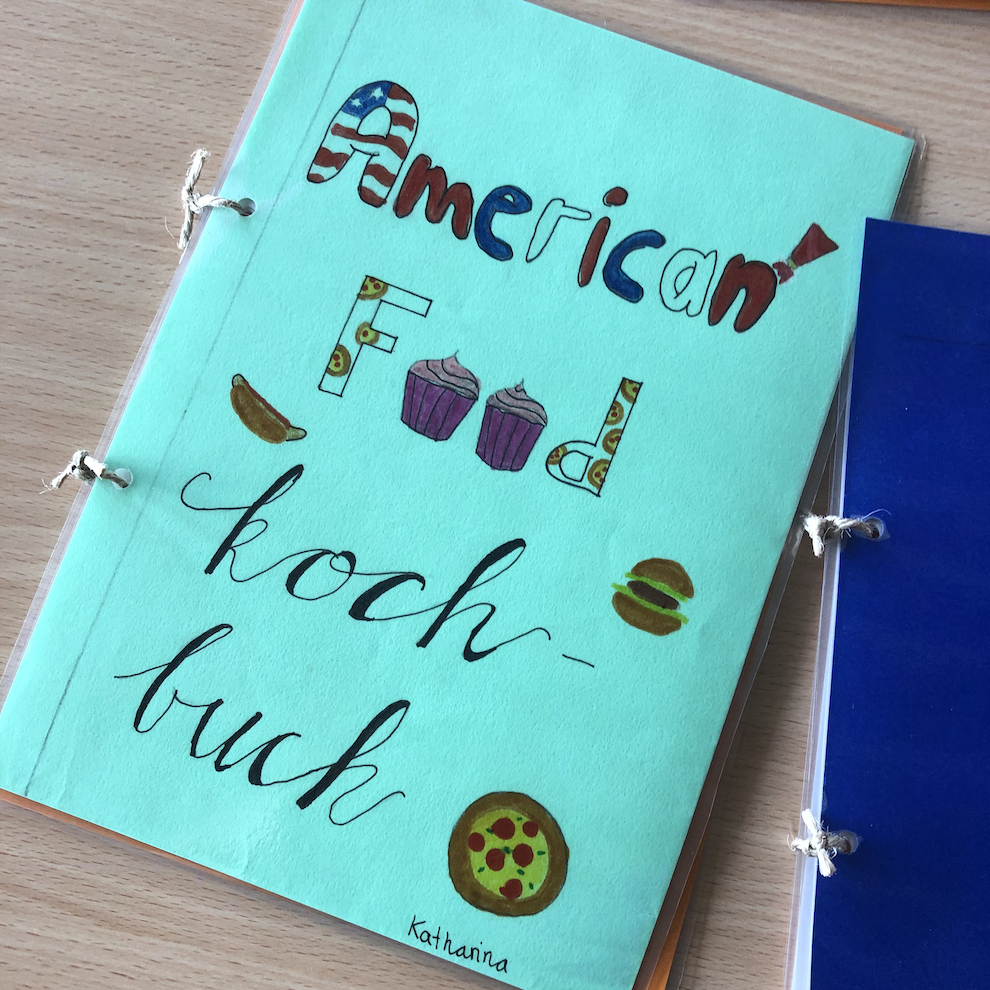 American
Food
koch-
buch
Katharina